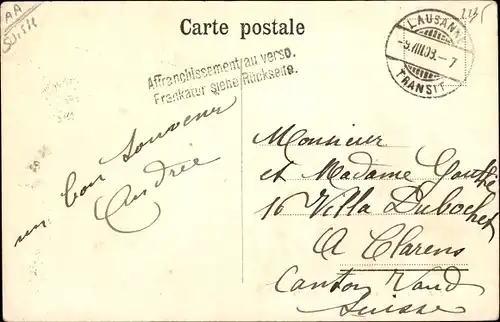 AA
Suisse
Carte postale
LAUSANNE
-9.III.09.-7
TRANSIT
Affranchissement au verso.
Frankatur siehe Rückseite.
un bon souvenir
Andrée
Monsieur
et Madame
16 Villa Dubochet
A Clarens
Canton Vaud
Suisse